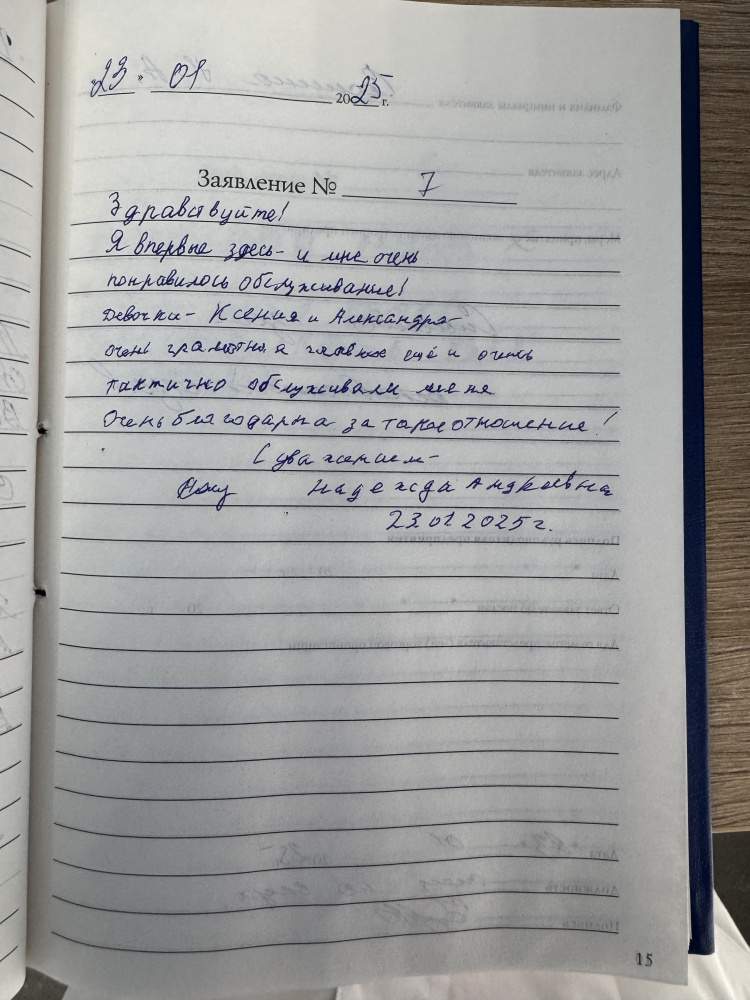 «23» 01 2025 г.
Заявление № 7
Здравствуйте!
Я впервые здесь - и мне очень
понравилось обслуживание!
Девочки - Ксения и Александра -
очень грамотно, а главное ещё и очень
тактично обслуживали меня
Очень благодарна за такое отношение!
С уважением -
Надежда Андреевна
23.01.2025 г.
15